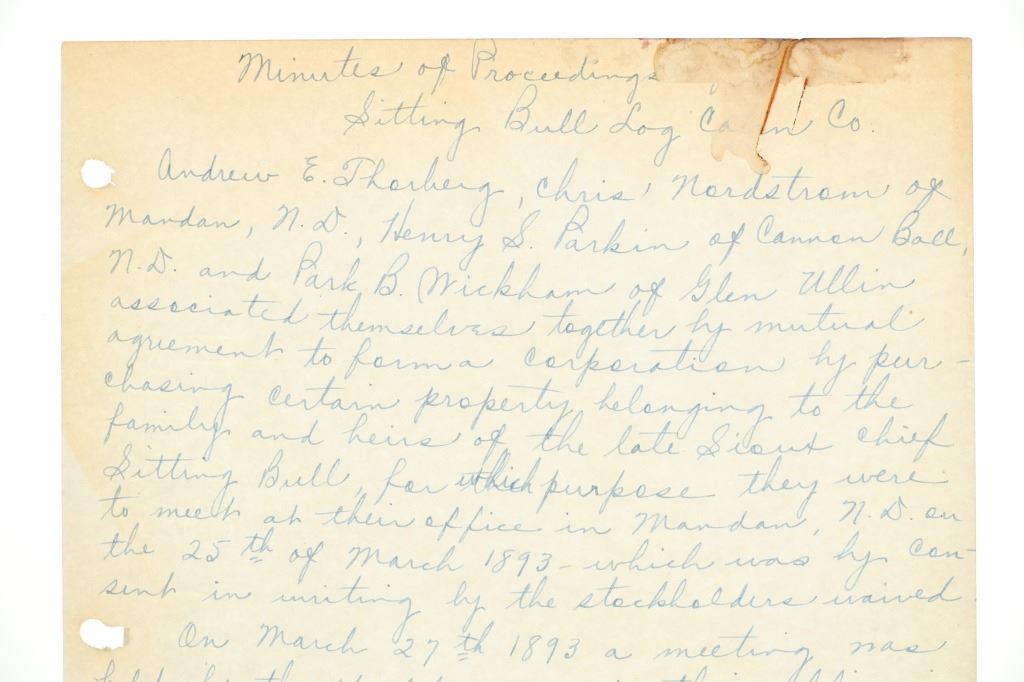 Minutes of Proceedings
Sitting Bull Log Ca in Co.
Andrew E. Thorberg, Chris Nordstrom of
Mandan, N.D., Henry S. Parkin of Cannon Ball,
N.D. and Park B. Wickham of Glen Ullin
associated themselves together by mutual
agriement to form a corporation by pur-
chasing certain property belonging to the
family and heirs of the late Sioux chief
Sitting Bull, for which purpose they were
to meet at their office in Mandan, N.D. on
the 25th of March 1893 - which was by con-
sent in writing by the stockholders waived
On March 27th 1893 a meeting was